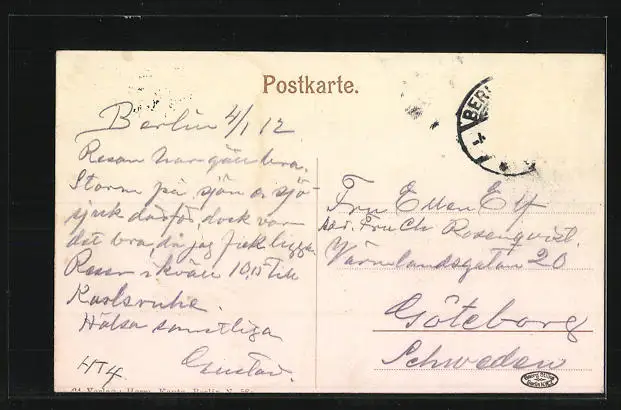 Postkarte.
Berlin 4/1 12
Resan har gått bra.
Storm på sjön o. sjö-
sjuk därför, dock var
det bra, då jag fick ligga.
Reser i kväll 10,15 till
Karlsruhe.
Hälsa samtliga
Gustav.
Fru Ellen Elf
adr. Fru Ch Rosenqvist.
Värmlandsgatan 20
Göteborg
Schweden
BER